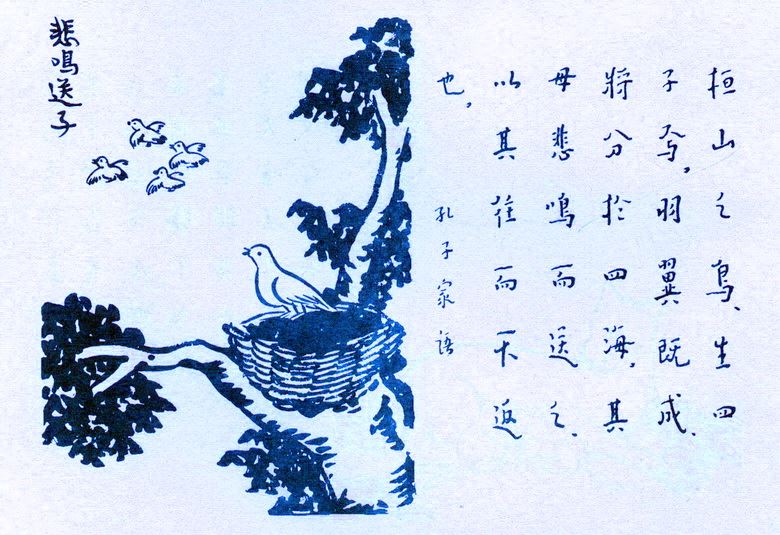 桓山之鳥、生四
子焉，羽翼既成、
將分於四海，其
母悲鳴而送之、
以其往而不返
也，
孔子家語
悲鳴送子